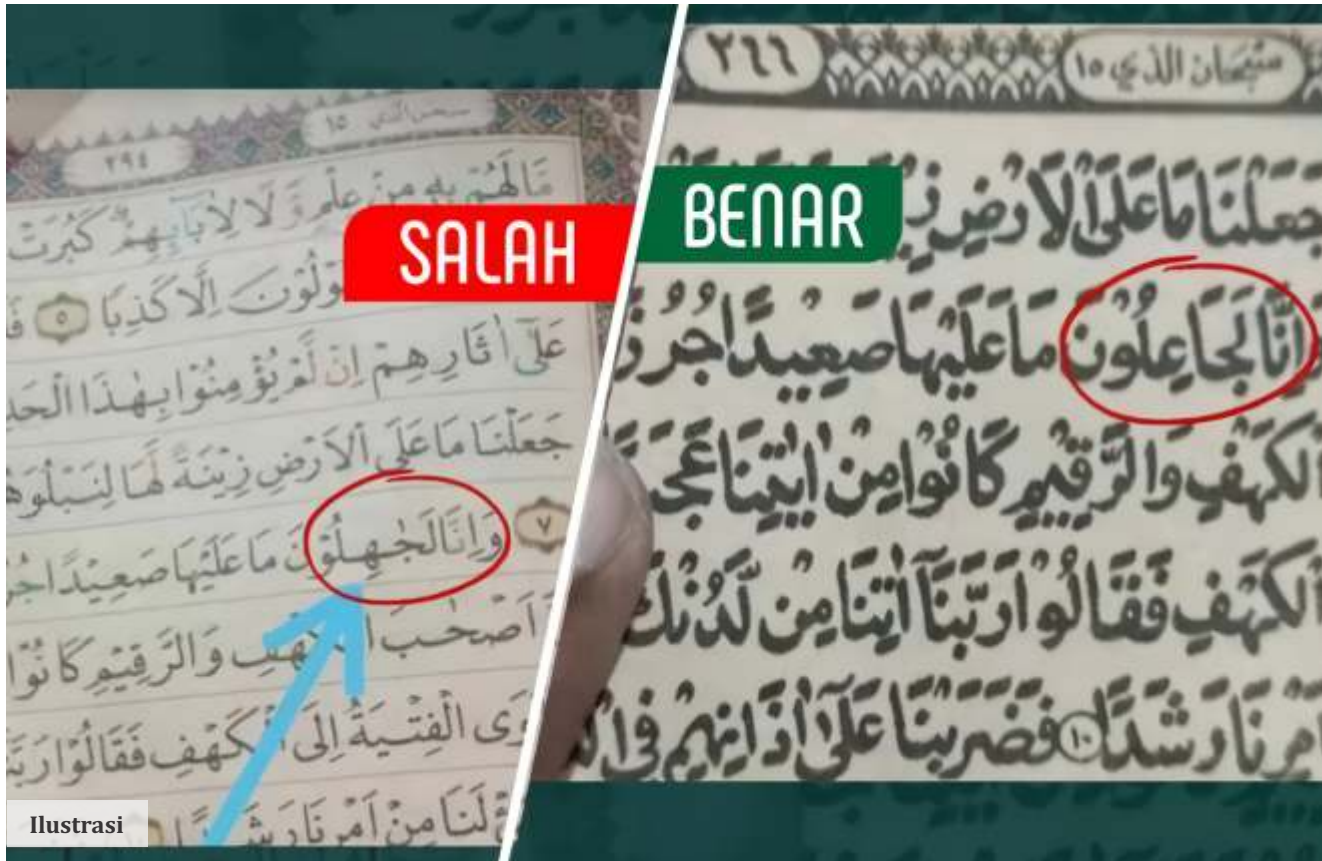 سبحن الذي ١٥
٢٩٤
مَا لَهُمْ بِهٖ مِنْ عِلْمٍ وَّلَا لِاٰبَاۤىِٕهِمْۗ كَبُرَتْ
وْلُوْنَ اِلَّا كَذِبًا ٥
عَلٰٓى اٰثَارِهِمْ اِنْ لَّمْ يُؤْمِنُوْا بِهٰذَا الْحَدِ
جَعَلْنَا مَا عَلَى الْاَرْضِ زِيْنَةً لَّهَا لِنَبْلُوَهُ
٧ وَاِنَّا لَجٰهِلُوْنَ مَا عَلَيْهَا صَعِيْدًا جُرُ
اَصْحٰبَ وَالرَّقِيْمِ كَانُوْا
الْفِتْيَةُ اِلَى الْكَهْفِ فَقَالُوْا رَبَّنَ
لَنَا مِنْ اَمْرِنَا رَشَدًا
SALAH
Ilustrasi
سُبْحَانَ الَّذِي ١٥
٢٦٦
BENAR
جَعَلْنَا مَا عَلَى الْاَرْضِ زِيْ
وَاِنَّا لَجَاعِلُوْنَ مَا عَلَيْهَا صَعِيْدًا جُرُزً
الْكَهْفِ وَالرَّقِيْمِ كَانُوْا مِنْ اٰيٰتِنَا عَجَبً
الْكَهْفِ فَقَالُوْا رَبَّنَآ اٰتِنَا مِنْ لَّدُنْكَ
اَمْرِنَا رَشَدًا ١٠ فَضَرَبْنَا عَلٰٓى اٰذَانِهِمْ فِى الْ